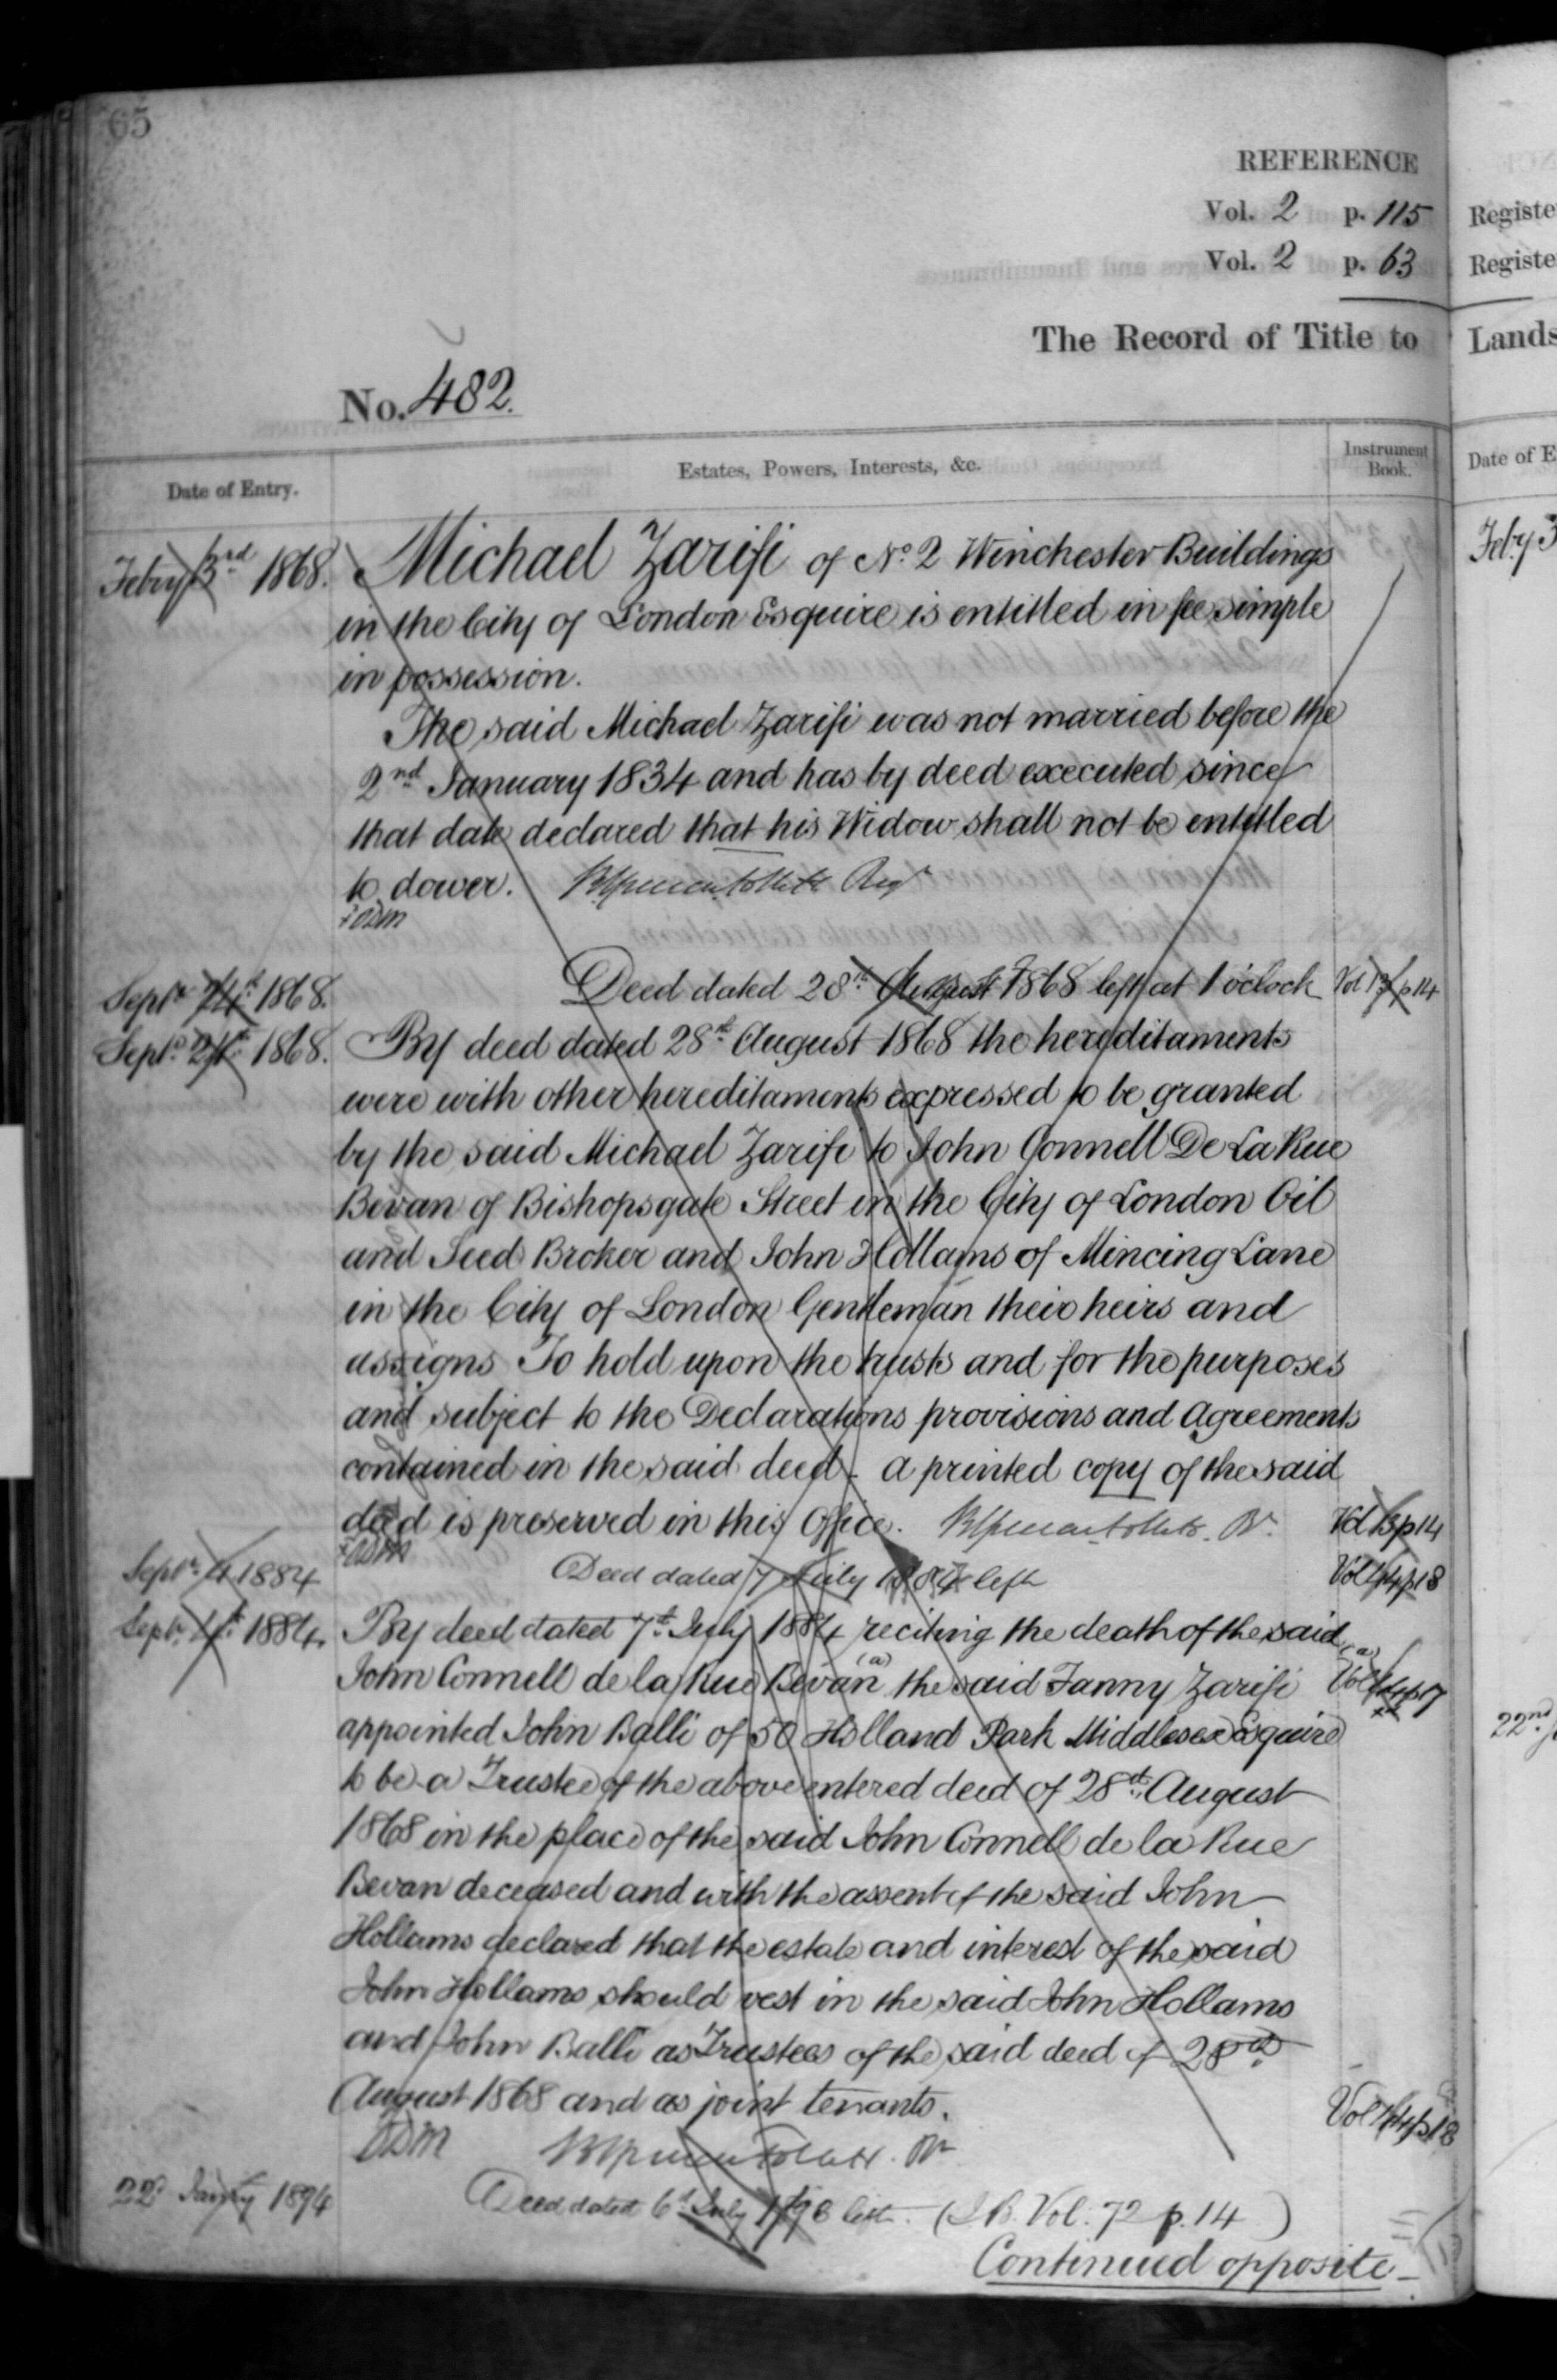 65
REFERENCE
Vol. 2 p. 115 Registe
Vol. 2 p. 63 Registe
The Record of Title to Lands
No. 482.
Date of Entry. Estates, Powers, Interests, &c. Instrument Book. Date of E
Feby 3rd 1868. Michael Zarifi of No. 2 Winchester Buildings
in the City of London Esquire is entitled in fee simple
in possession.
The said Michael Zarifi was not married before the
2nd January 1834 and has by deed executed since
that date declared that his Widow shall not be entitled
to dower.
Septr 1868. Deed dated 28th August 1868 left at 1 o'clock Vol 13 p 14
Septr 1868. By deed dated 28th August 1868 the hereditaments
were with other hereditaments expressed to be granted
by the said Michael Zarifi to John Connell De La Rue
Bevan of Bishopsgate Street in the City of London Oil
and Seed Broker and John Hollams of Mincing Lane
in the City of London Gentleman their heirs and
assigns To hold upon the trusts and for the purposes
and subject to the Declarations provisions and Agreements
contained in the said deed - a printed copy of the said
deed is preserved in this Office. Vol 13 p 14
Septr 4 1884 Deed dated 7 July 1884 left Vol 44 p 18
Septr 1884. By deed dated 7th July 1884 reciting the death of the said
John Connell de la Rue Bevan (a) the said Fanny Zarifi (a) Vol 44 p 17
appointed John Balli of 50 Holland Park Middlesex Esquire
to be a Trustee of the above entered deed of 28th August
1868 in the place of the said John Connell de la Rue
Bevan deceased and with the assent of the said John
Hollams declared that the estate and interest of the said
John Hollams should vest in the said John Hollams
and John Balli as Trustees of the said deed of 28th
August 1868 and as joint tenants. Vol 44 p 18
22d Jany 1894 Deed dated 6th July left. (I.B. Vol. 72 p. 14)
Continued opposite -
Feby 3
22nd